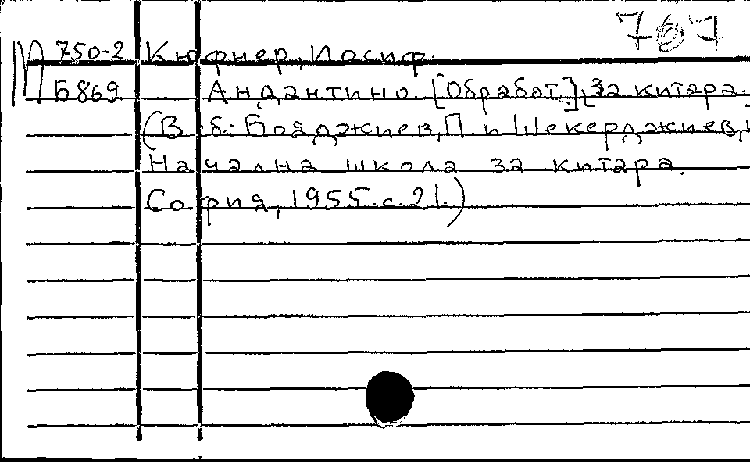 767
М 750-2 Кюфнер, Иосиф.
Б869 Андантино [Обработ.] за китара.
(В сб.: Бояджиев, П. и Шекерджиев,
Начална школа за китара.
София, 1955. с. 21.)